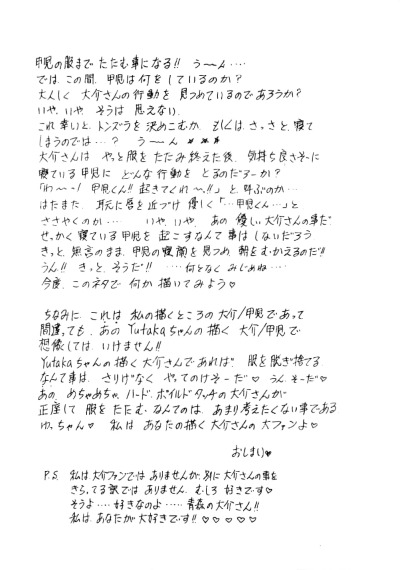 甲児の服まで たたむ事になる!! う〜ん‥‥
では、この間、甲児は何をしているのか?
大人しく 大介さんの行動を 見つめているのであろうか?
いや、いや、そうは 思えない。
これ幸いと、トンズラを決めこむか、もしくは、さっさと、寝て
しまうのでは‥‥? う〜ん
大介さんは やっと服をたたみ終えた後、気持ち良さそーに
寝ている 甲児に どんな行動を とるのだろーか?
「わ〜〜! 甲児くん!! 起きてくれ〜!!」と、叫ぶのか‥‥
はたまた、耳元に唇を近づけ 優しく「‥‥甲児くん‥‥」と
ささやくのか‥‥ いや、いや、あの 優しい大介さんの事だ、
せっかく寝ている 甲児を 起こすなんて事は しないだろう
きっと、無言のまま、甲児の寝顔を見つめ 朝をむかえるのだ!!
うん!! きっと、そうだ!! ‥‥何となく みじめね‥‥
今度、このネタで 何か描いてみよう♡
ちなみに、これは 私の描くところの 大介/甲児であって
間違っても、あの Yutakaちゃんの描く 大介/甲児で
想像しては、いけません!!
Yutakaちゃんの描く大介さんであれば、服を脱ぎ捨てる
なんて事は、さりげなく やってのけそーだ♡ うん、そーだ♡
あの、めちゃめちゃ ハード、ボイルドタッチの大介さんが
正座して 服をたたむ、なんてのは、あまり考えたくない事である
ゆ、ちゃん♡ 私は あなたの描く大介さんの 大ファンよ♡
おしまい♥
P.S. 私は、大介ファンでは ありませんが、別に 大介さんの事を
きらってる訳では ありません、むしろ 好きです♡
そうよ‥‥好きなのよ‥‥ 青森の大介さん!!
私は、あなたが 大好きです!! ♡♡♡♡♡